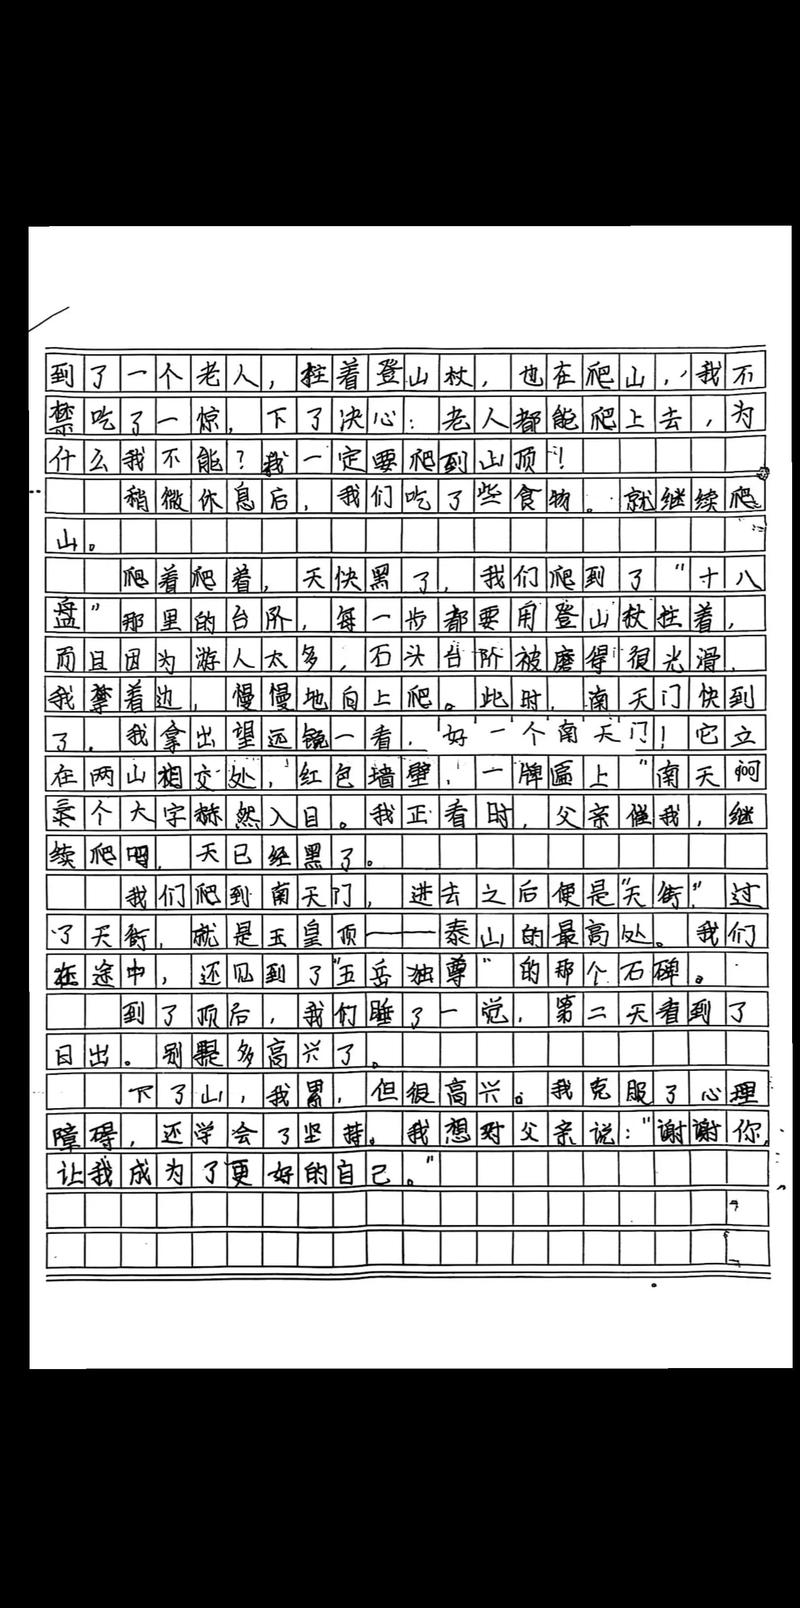 到了一个老人，拄着登山杖，也在爬山，我不
禁吃了一惊，下了决心：老人都能爬上去，为
什么我不能？我一定要爬到山顶！
稍微休息后，我们吃了些食物。就继续爬
山。
爬着爬着，天快黑了，我们爬到了“十八
盘”那里的台阶，每一步都要用登山杖拄着，
而且因为游人太多，石头台阶被磨得很光滑，
我攀着边，慢慢地向上爬。此时，南天门快到
了。我拿出望远镜一看，好一个南天门！它立
在两山相交处，红色墙壁，一牌匾上“南天门”
三个大字赫然入目。我正看时，父亲催我，继
续爬吧，天已经黑了。
我们爬到南天门，进去之后便是“天街”过
了天街，就是玉皇顶——泰山的最高处。我们
在途中，还见到了“五岳独尊”的那个石碑。
到了顶后，我们睡了一觉，第二天看到了
日出。别提多高兴了。
下了山，我累，但很高兴。我克服了心理
障碍，还学会了坚持。我想对父亲说：“谢谢你，
让我成为了更好的自己。”